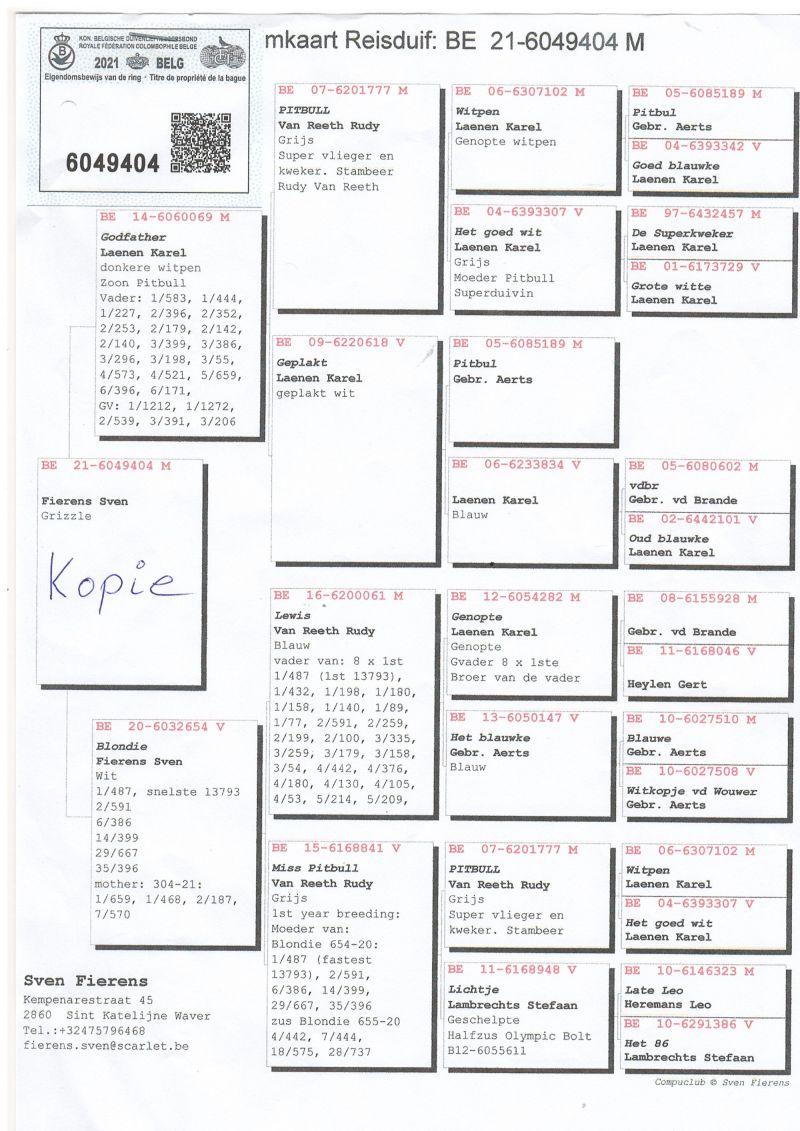 KON. BELGISCHE DUIVENLIEFHEBBERSBOND
ROYALE FÉDÉRATION COLOMBOPHILE BELGE
2021 BELG
Eigendomsbewijs van de ring - Titre de propriété de la bague
6049404
mkaart Reisduif: BE 21-6049404 M
BE 14-6060069 M
Godfather
Laenen Karel
donkere witpen
Zoon Pitbull
Vader: 1/583, 1/444,
1/227, 2/396, 2/352,
2/253, 2/179, 2/142,
2/140, 3/399, 3/386,
3/296, 3/198, 3/55,
4/573, 4/521, 5/659,
6/396, 6/171,
GV: 1/1212, 1/1272,
2/539, 3/391, 3/206
BE 21-6049404 M
Fierens Sven
Grizzle
Kopie
BE 20-6032654 V
Blondie
Fierens Sven
Wit
1/487, snelste 13793
2/591
6/386
14/399
29/667
35/396
mother: 304-21:
1/659, 1/468, 2/187,
7/570
BE 07-6201777 M
PITBULL
Van Reeth Rudy
Grijs
Super vlieger en
kweker. Stambeer
Rudy Van Reeth
BE 09-6220618 V
Geplakt
Laenen Karel
geplakt wit
BE 16-6200061 M
Lewis
Van Reeth Rudy
Blauw
vader van: 8 x 1st
1/487 (1st 13793),
1/432, 1/198, 1/180,
1/158, 1/140, 1/89,
1/77, 2/591, 2/259,
2/199, 2/100, 3/335,
3/259, 3/179, 3/158,
3/54, 4/442, 4/376,
4/180, 4/130, 4/105,
4/53, 5/214, 5/209,
BE 15-6168841 V
Miss Pitbull
Van Reeth Rudy
Grijs
1st year breeding:
Moeder van:
Blondie 654-20:
1/487 (fastest
13793), 2/591,
6/386, 14/399,
29/667, 35/396
zus Blondie 655-20
4/442, 7/444,
18/575, 28/737
BE 06-6307102 M
Witpen
Laenen Karel
Genopte witpen
BE 04-6393307 V
Het goed wit
Laenen Karel
Grijs
Moeder Pitbull
Superduivin
BE 05-6085189 M
Pitbul
Gebr. Aerts
BE 06-6233834 V
Laenen Karel
Blauw
BE 12-6054282 M
Genopte
Laenen Karel
Genopte
Gvader 8 x 1ste
Broer van de vader
BE 13-6050147 V
Het blauwke
Gebr. Aerts
Blauw
BE 07-6201777 M
PITBULL
Van Reeth Rudy
Grijs
Super vlieger en
kweker. Stambeer
BE 11-6168948 V
Lichtje
Lambrechts Stefaan
Geschelpte
Halfzus Olympic Bolt
B12-6055611
BE 05-6085189 M
Pitbul
Gebr. Aerts
BE 04-6393342 V
Goed blauwke
Laenen Karel
BE 97-6432457 M
De Superkweker
Laenen Karel
BE 01-6173729 V
Grote witte
Laenen Karel
BE 05-6080602 M
vdbr
Gebr. vd Brande
BE 02-6442101 V
Oud blauwke
Laenen Karel
BE 08-6155928 M
Gebr. vd Brande
BE 11-6168046 V
Heylen Gert
BE 10-6027510 M
Blauwe
Gebr. Aerts
BE 10-6027508 V
Witkopje vd Wouwer
Gebr. Aerts
BE 06-6307102 M
Witpen
Laenen Karel
BE 04-6393307 V
Het goed wit
Laenen Karel
BE 10-6146323 M
Late Leo
Heremans Leo
BE 10-6291386 V
Het 86
Lambrechts Stefaan
Sven Fierens
Kempenarestraat 45
2860 Sint Katelijne Waver
Tel.:+32475796468
fierens.sven@scarlet.be
Compuclub © Sven Fierens